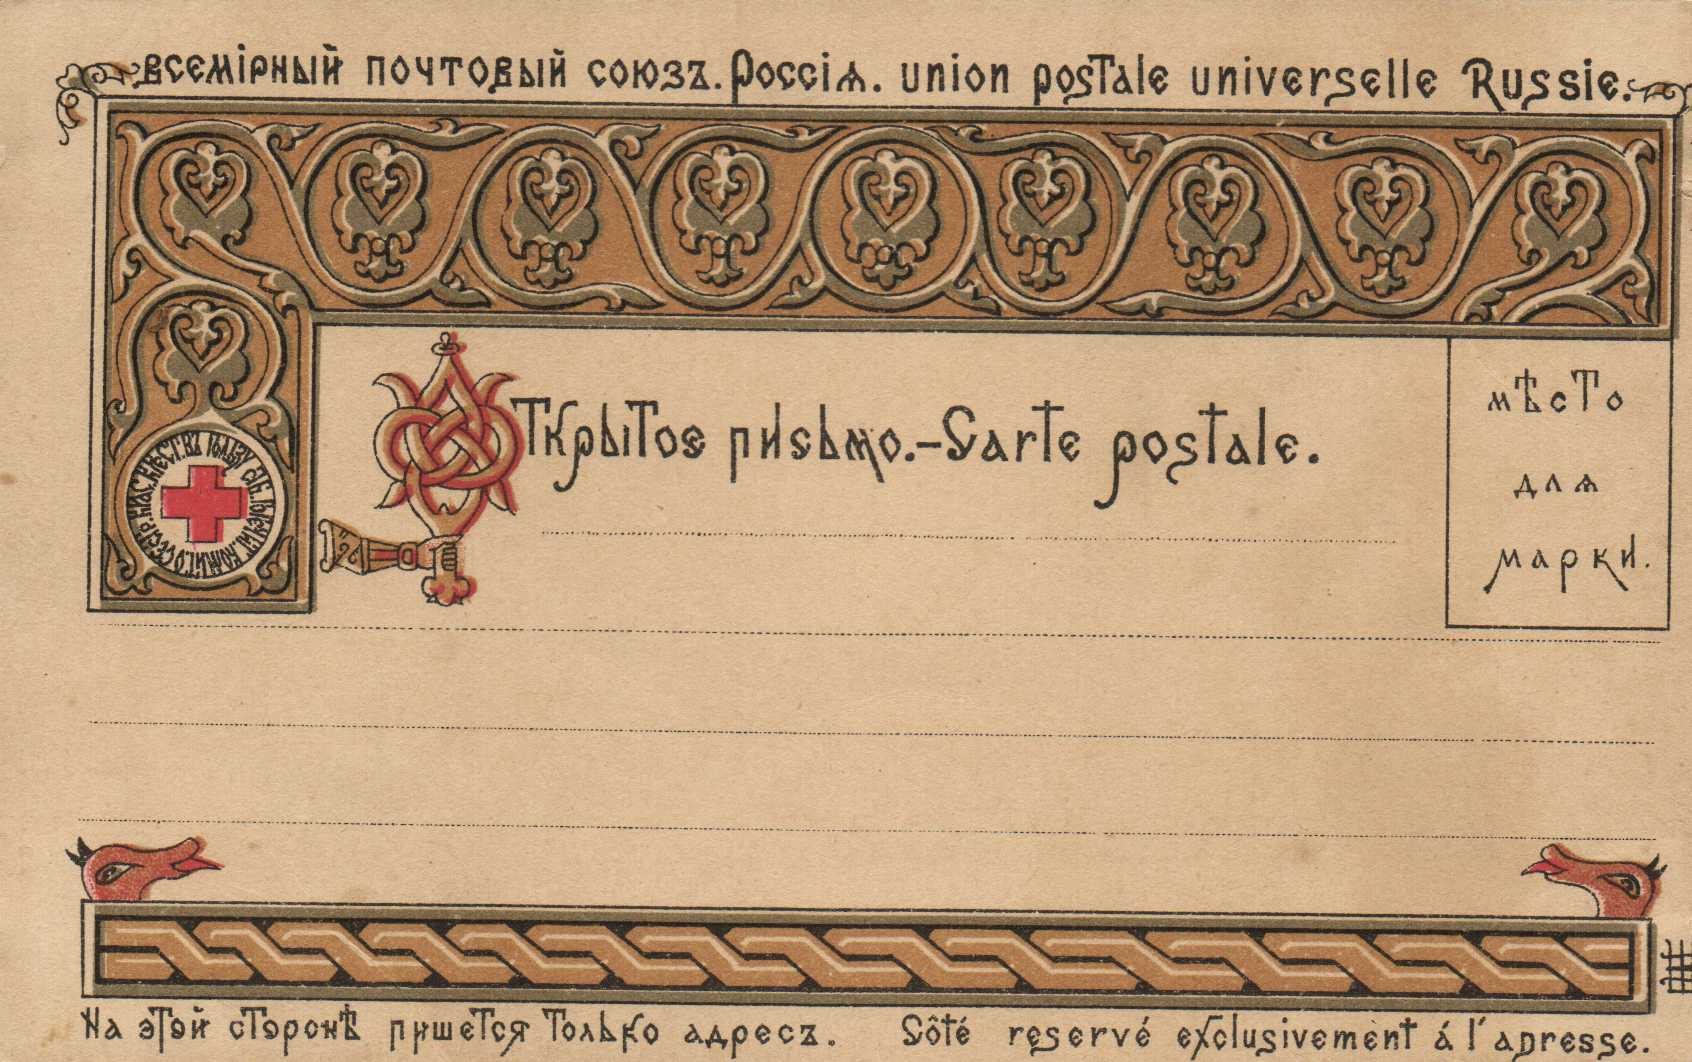 Всемірный почтовый союзъ. Россія. union postale universelle Russie.
Открытое письмо.-Carte postale.
мѣсто
для
марки.
На этой сторонѣ пишется только адресъ. Côté reservé exclusivement á l'adresse.